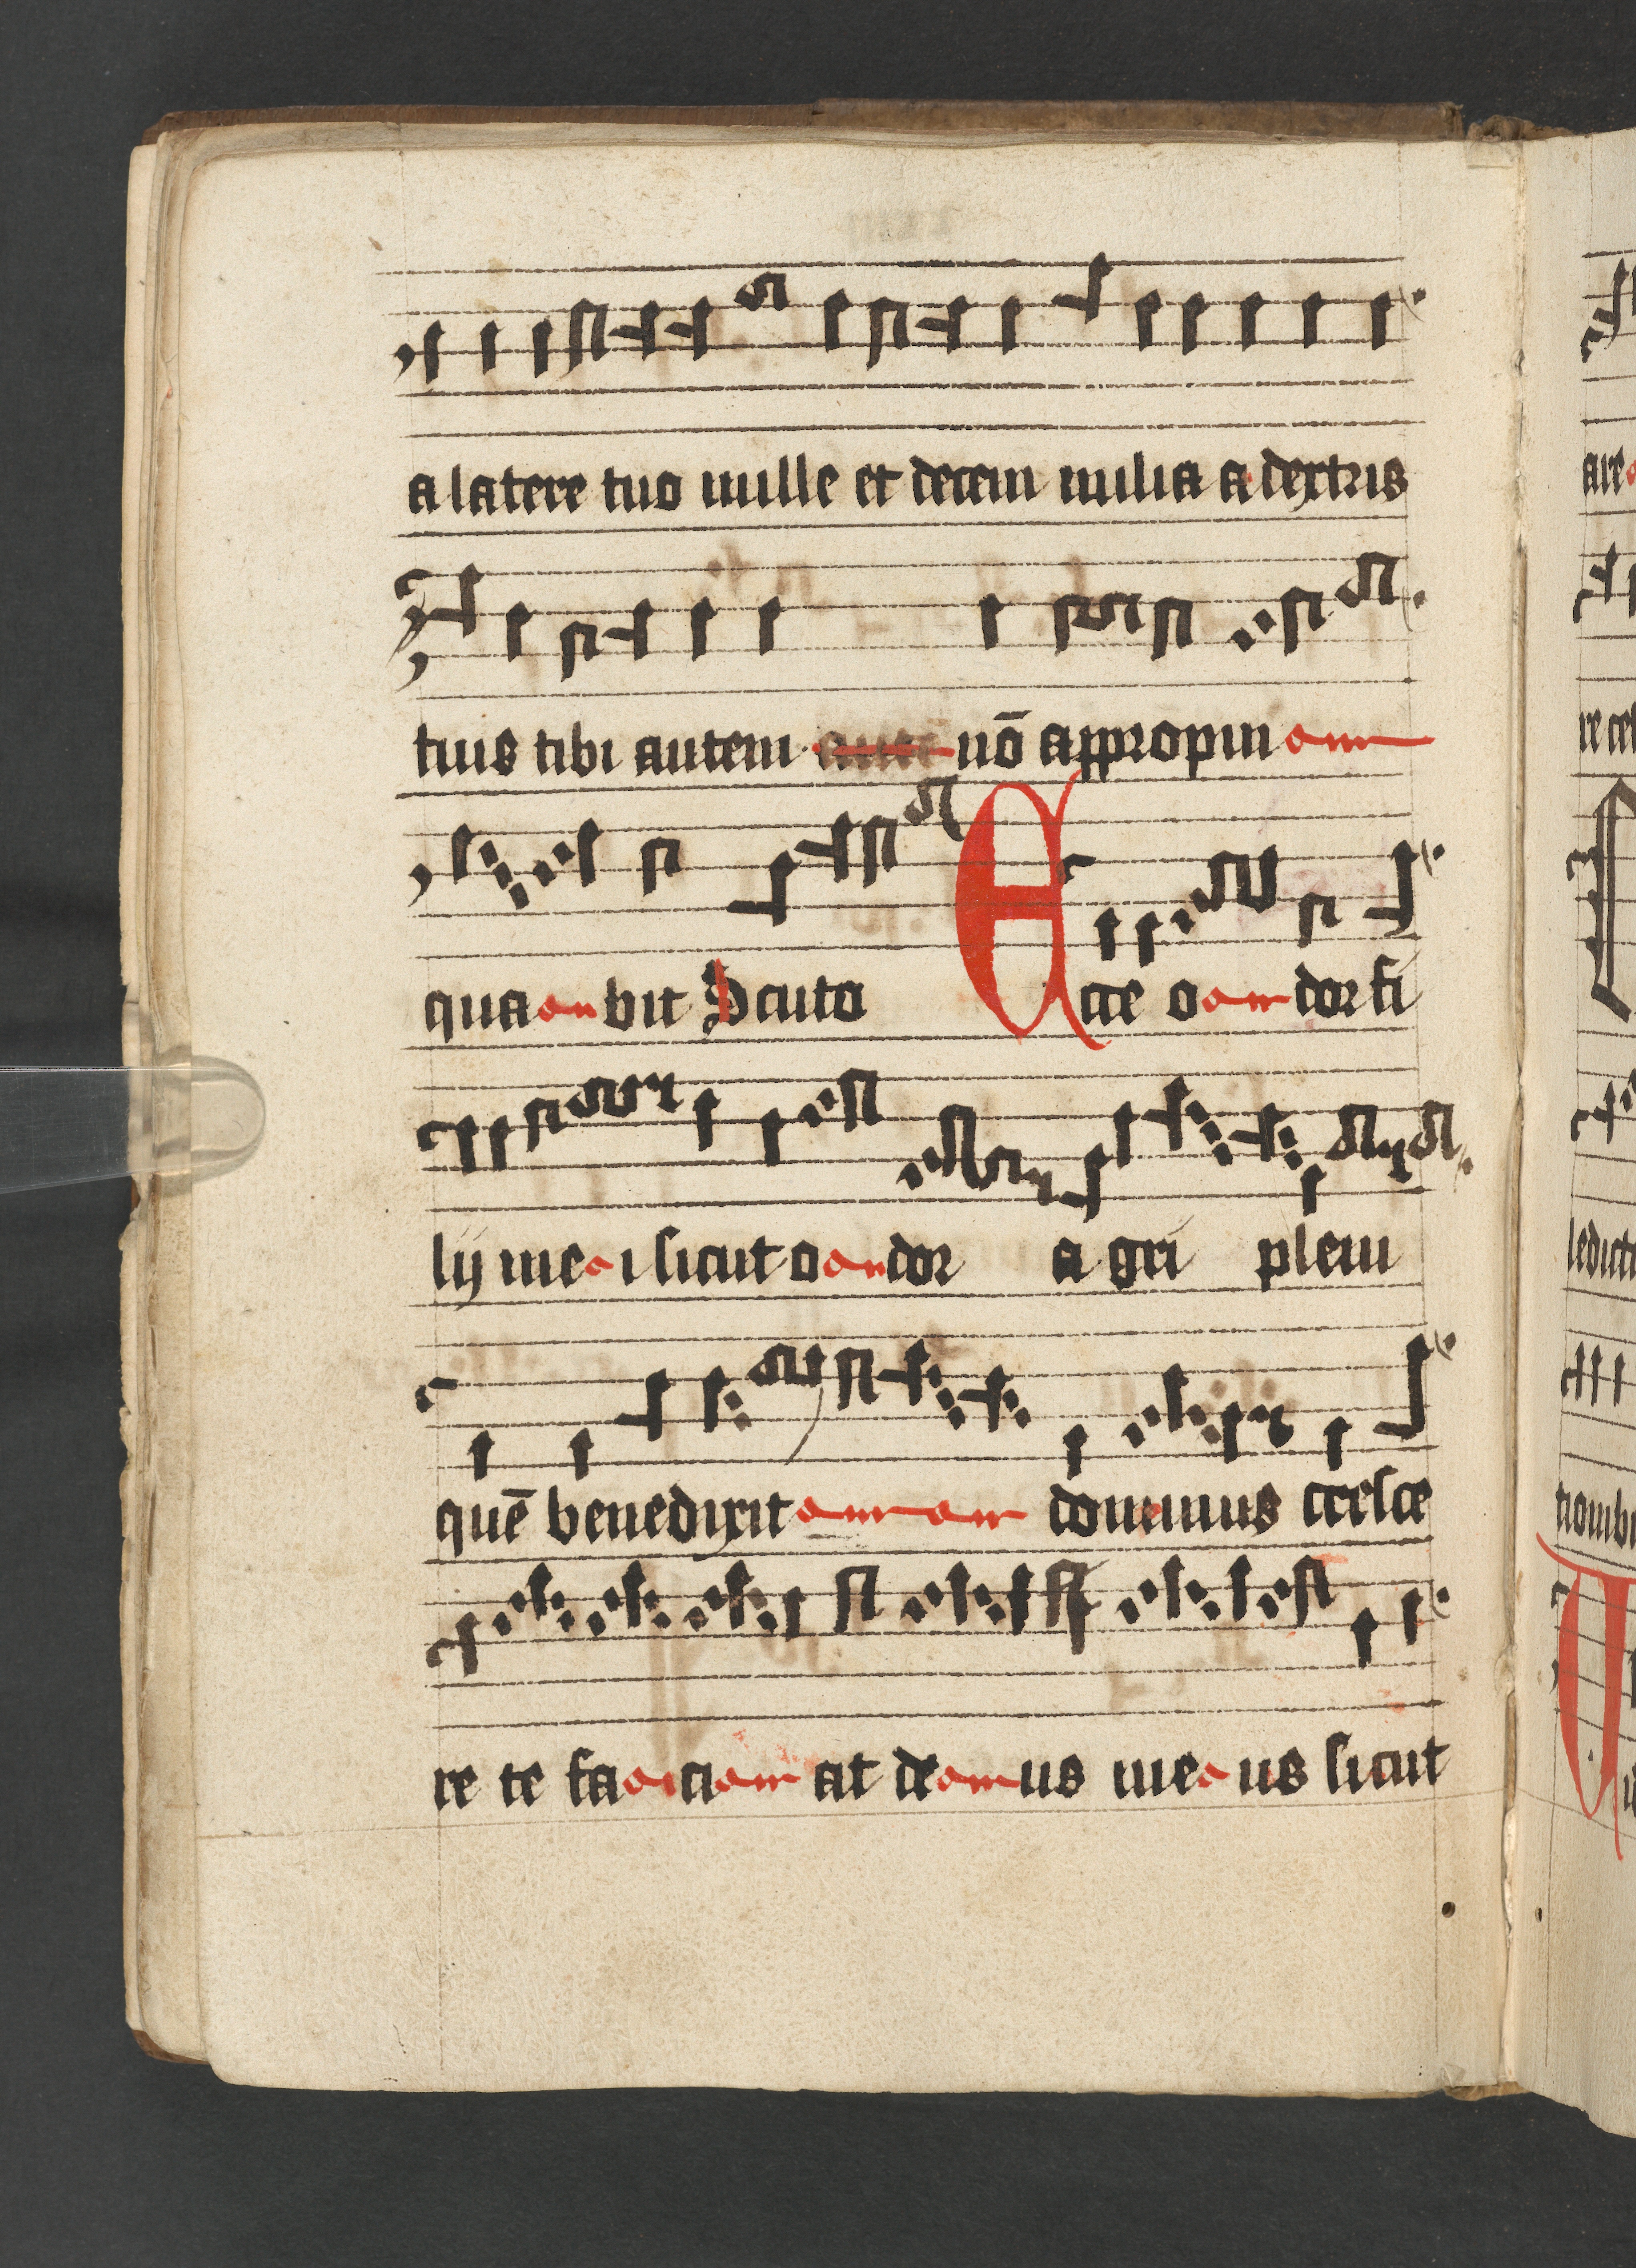 a latere tuo mille et decem milia a dextris
tuis tibi autem autē nō appropin
qua bit Scuto Ecce o dor fi
lij me i sicut o dor a gri pleni
quē benedixit dominus cresce
re te fa ci at de us me us sicut